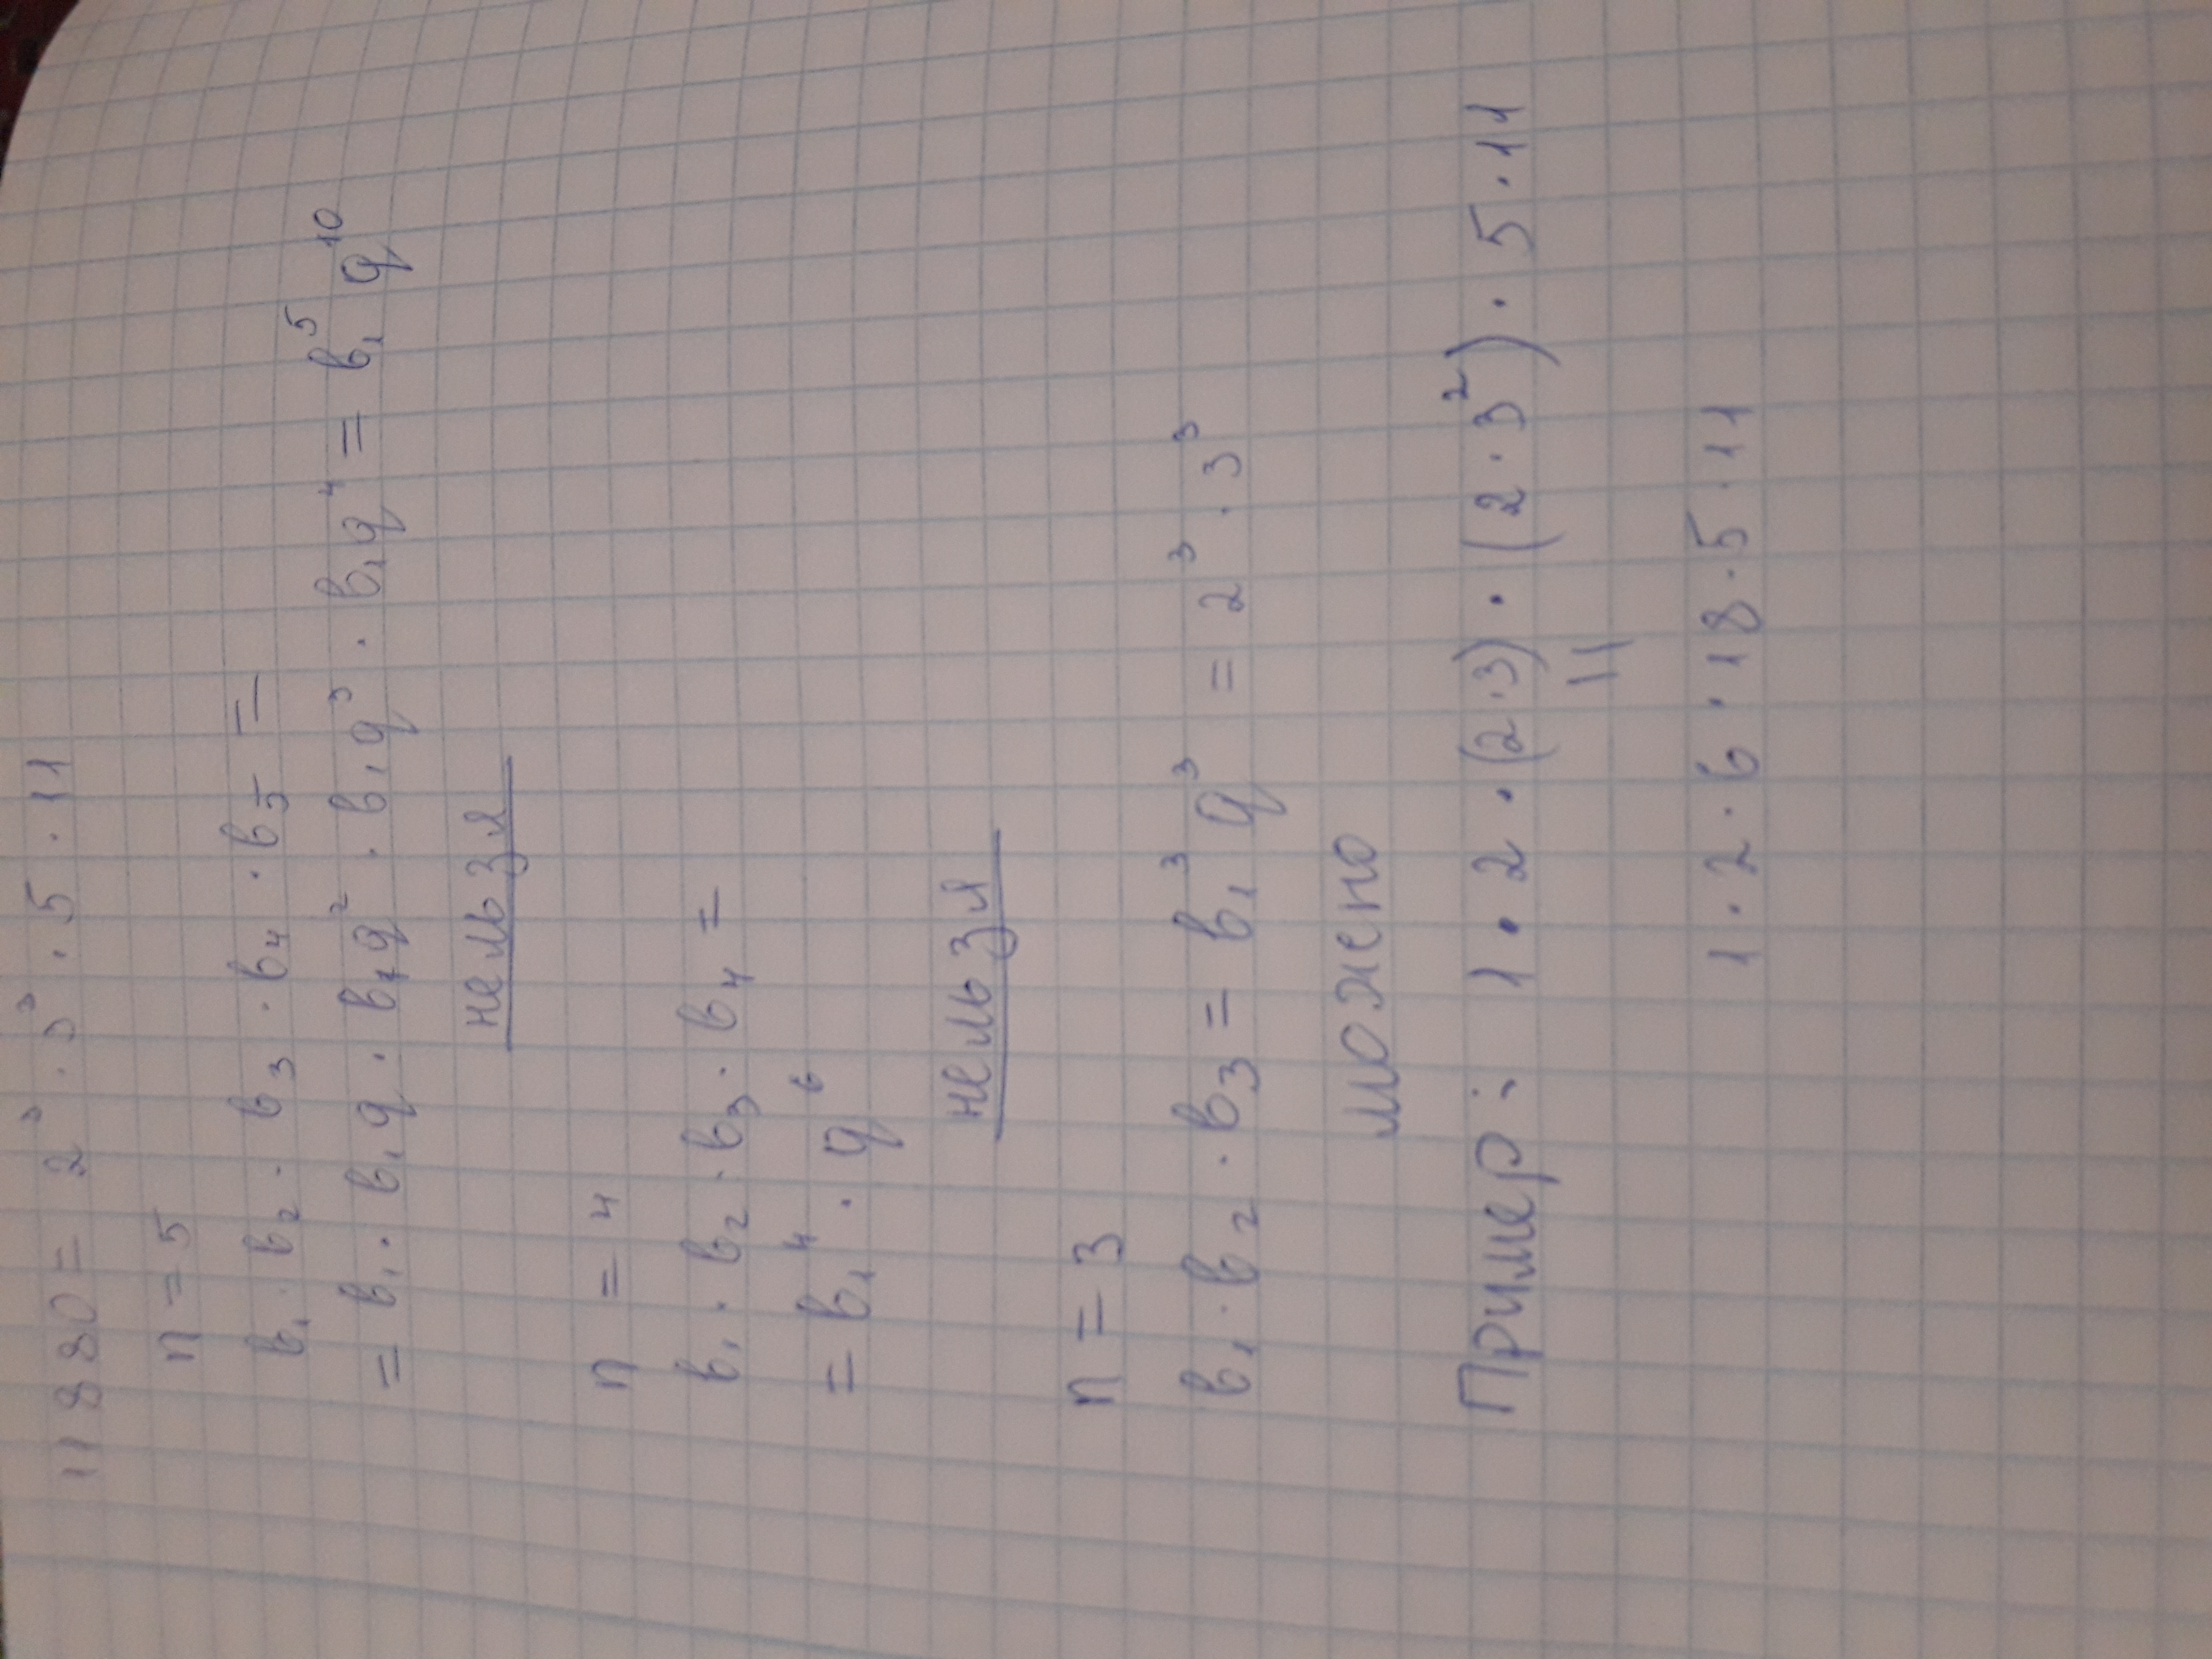 11880 = 2³ · 3³ · 5 · 11
n = 5
b₁ · b₂ · b₃ · b₄ · b₅ =
= b₁ · b₁q · b₁q² · b₁q³ · b₁q⁴ = b₁⁵ q¹⁰
нельзя
n = 4
b₁ · b₂ · b₃ · b₄ =
= b₁⁴ · q⁶
нельзя
n = 3
b₁ · b₂ · b₃ = b₁³ q³ = 2³ · 3³
можно
Пример: 1 · 2 · (2 · 3) · (2 · 3²) · 5 · 11
=
1 · 2 · 6 · 18 · 5 · 11